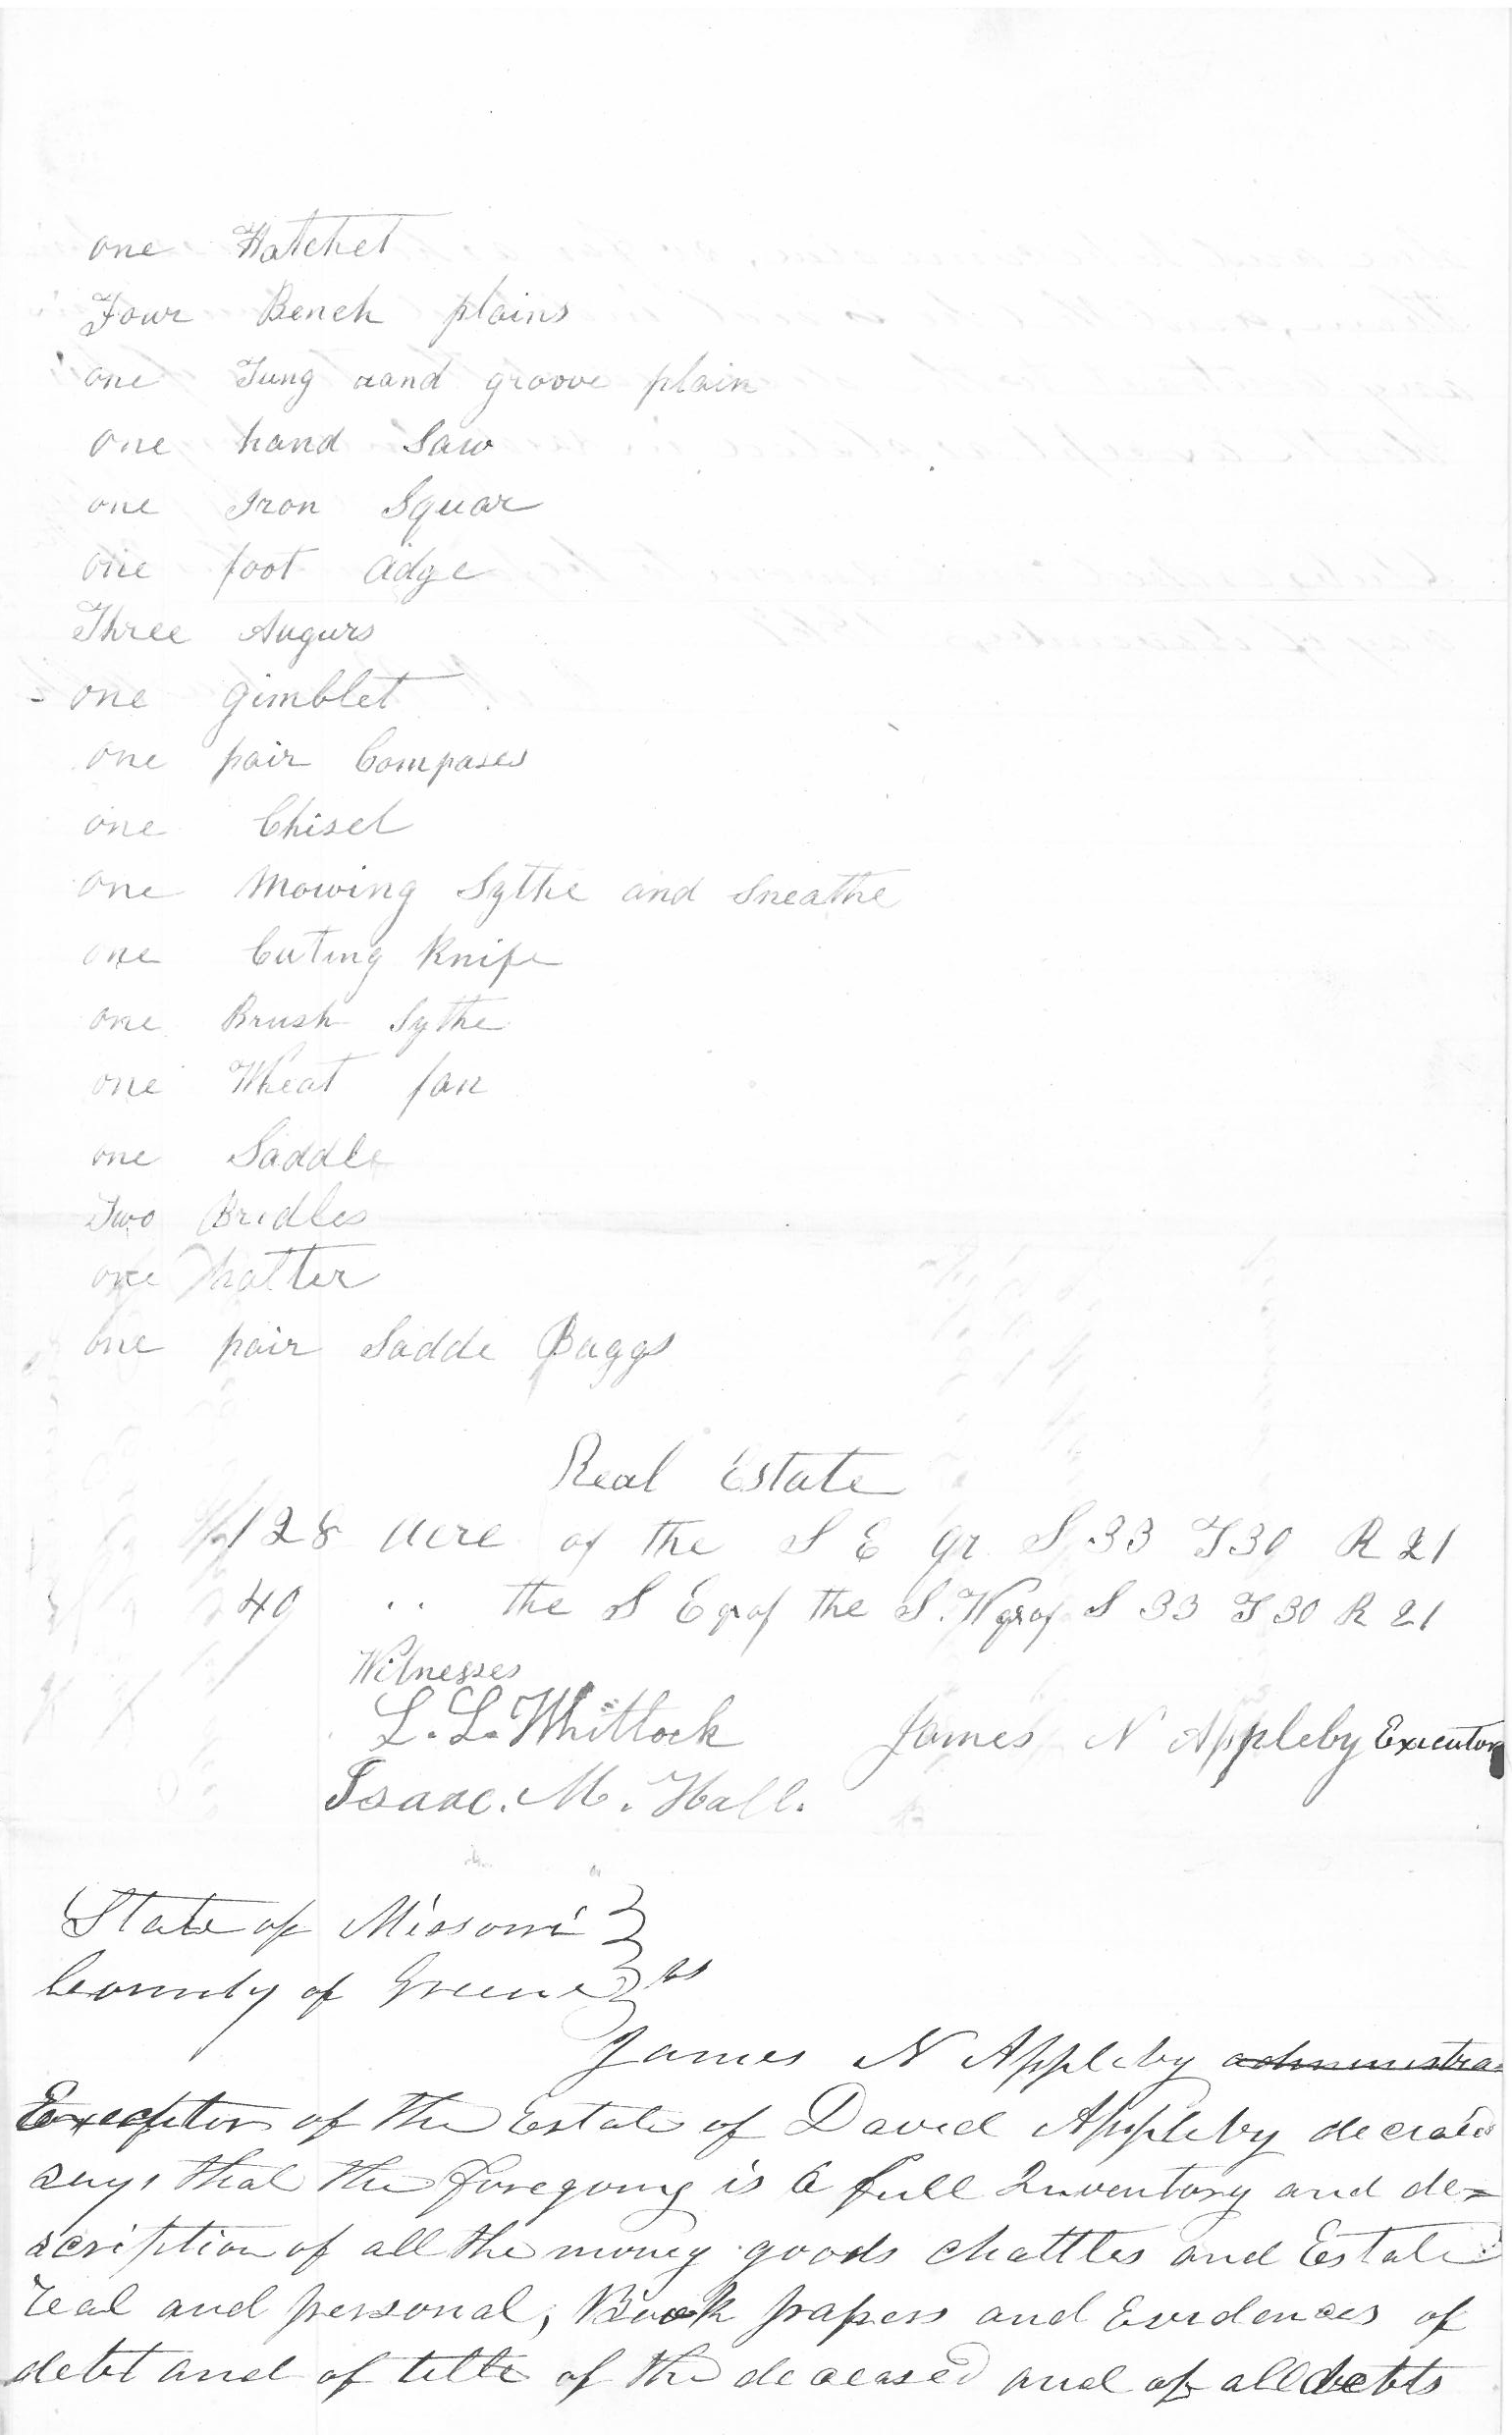 one Hatchet
Four Bench plains
one Tung and groove plain
one hand Saw
one Iron Squar
one foot adge
Three Augurs
one gimblet
one pair Compases
one Chisel
one Mowing Sythe and Sneathe
one Cuting Knife
one Brush Sythe
one Wheat fan
one Saddle
Two Bridles
one halter
one pair Sadde Baggs
Real Estate
128 acre of the S E qr S 33 T 30 R 21
40 " the S E qr of the S. W qr of S 33 T 30 R 21
Witnesses
L. L. Whitlock James N Appleby Executor
Isaac. M. Hall.
State of Missouri
County of Greene ss
James N Appleby administra
Executor of the Estate of David Appleby deceased
says that the foregoing is a full Inventory and de=
scription of all the money goods chattles and Estate
real and personal, Book papers and Evidences of
debt and of title of the deceased and of all debts